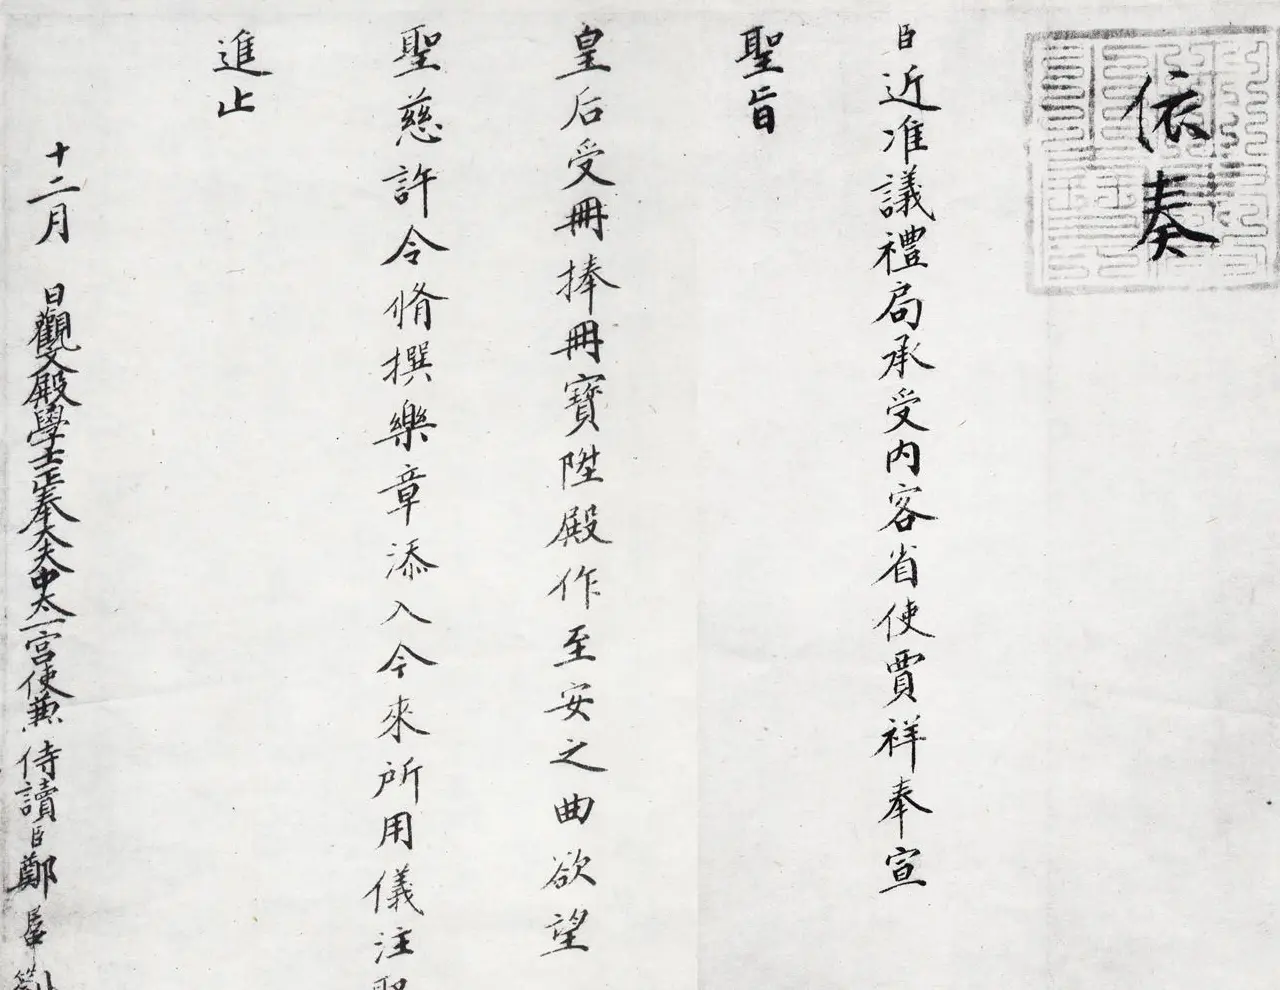 依奏
臣近准議禮局承受內客省使賈祥奉宣
聖旨
皇后受冊捧冊寶陞殿作至安之曲欲望
聖慈許令脩撰樂章添入今來所用儀注
進止
十二月 日觀文殿學士正奉大夫中太一宮使兼侍讀臣鄭居中